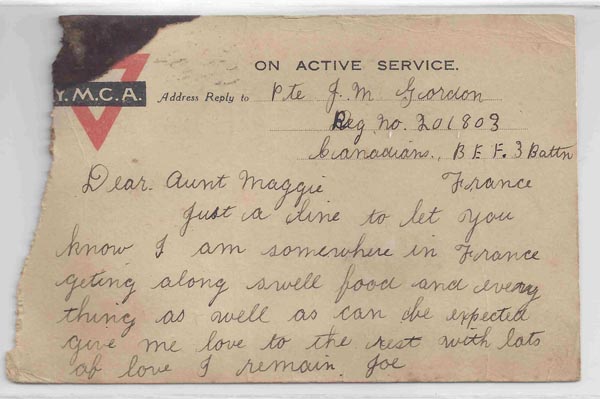 ON ACTIVE SERVICE.
Y.M.C.A. Address Reply to Pte J. M. Gordon
Reg no. 201803
Canadians., B E F. 3 Battn
Dear. Aunt Maggie France
Just a line to let you
know I am somewhere in France
geting along swell food and every
thing as well as can be expected
give me love to the rest with lots
of love I remain. Joe